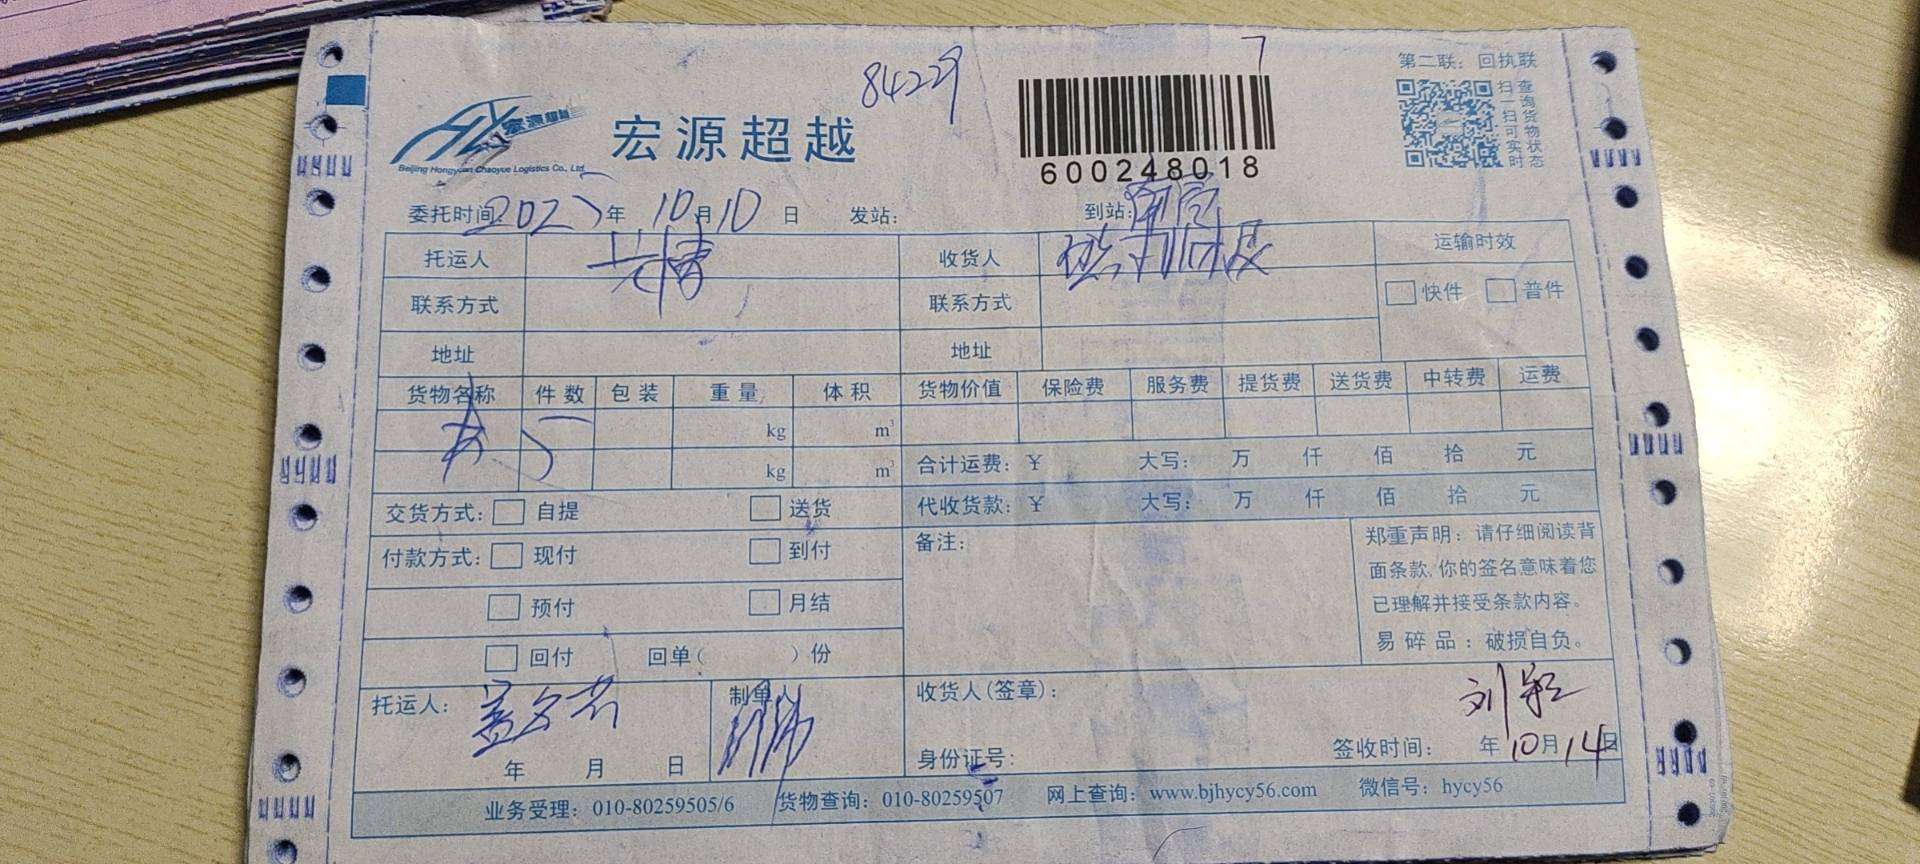 第二联：回执联
84229
7
宏源超越
宏源超越
Beijing Hongyuan Chaoyue Logistics Co., Ltd.
600248018
扫一扫可实时
查询货物状态
委托时间 年 10 月 10 日 发站： 到站：
托运人 收货人 运输时效
联系方式 联系方式 快件 普件
地址 地址
货物名称 件数 包装 重量 体积 货物价值 保险费 服务费 提货费 送货费 中转费 运费
kg m³
kg m³ 合计运费：￥ 大写： 万 仟 佰 拾 元
交货方式： 自提 送货 代收货款：￥ 大写： 万 仟 佰 拾 元
付款方式： 现付 到付 备注：
预付 月结
回付 回单（ ）份
郑重声明：请仔细阅读背
面条款，你的签名意味着您
已理解并接受条款内容。
易碎品：破损自负。
托运人： 制单人 收货人（签章）： 刘
年 月 日 身份证号： 签收时间： 年 10 月 14 日
业务受理：010-80259505/6 货物查询：010-80259507 网上查询：www.bjhycy56.com 微信号：hycy56